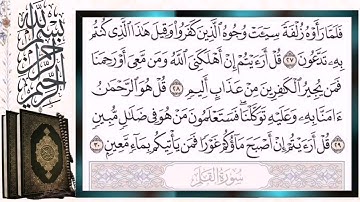 فَلَمَّا رَأَوْهُ زُلْفَةً سِيٓـَٔتْ وُجُوهُ ٱلَّذِينَ كَفَرُوا۟ وَقِيلَ هَٰذَا ٱلَّذِى كُنتُم
بِهِۦ تَدَّعُونَ ٢٧ قُلْ أَرَءَيْتُمْ إِنْ أَهْلَكَنِىَ ٱللَّهُ وَمَن مَّعِىَ أَوْ رَحِمَنَا
فَمَن يُجِيرُ ٱلْكَٰفِرِينَ مِنْ عَذَابٍ أَلِيمٍ ٢٨ قُلْ هُوَ ٱلرَّحْمَٰنُ
ءَامَنَّا بِهِۦ وَعَلَيْهِ تَوَكَّلْنَا فَسَتَعْلَمُونَ مَنْ هُوَ فِى ضَلَٰلٍ مُّبِينٍ
٢٩ قُلْ أَرَءَيْتُمْ إِنْ أَصْبَحَ مَآؤُكُمْ غَوْرًا فَمَن يَأْتِيكُم بِمَآءٍ مَّعِينٍۭ ٣٠
سُورَةُ ٱلْقَلَمِ
بسم الله الرحمن الرحيم